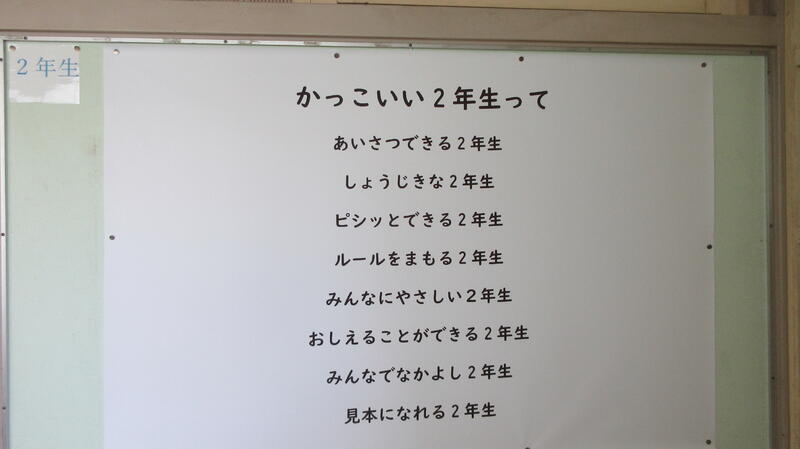 2年生
かっこいい2年生って
あいさつできる2年生
しょうじきな2年生
ピシッとできる2年生
ルールをまもる2年生
みんなにやさしい2年生
おしえることができる2年生
みんなでなかよし2年生
見本になれる2年生